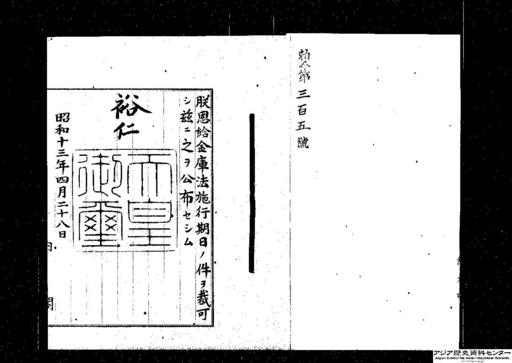 勅令第三百五號
朕恩給金庫法施行期日ノ件ヲ裁可
シ茲ニ之ヲ公布セシム
裕仁
天皇
御璽
昭和十三年四月二十八日
内
閣
アジア歴史資料センター
Japan Center for Asian Historical Records